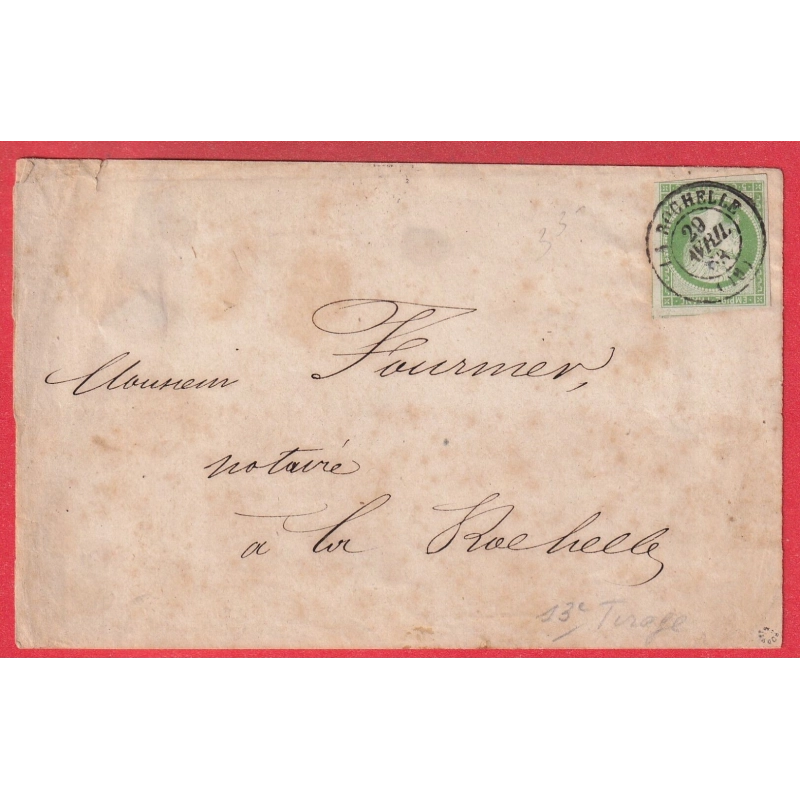 LA ROCHELLE
29
AVRIL
58
(16)
Monsieur Fournier,
notaire
à la Rochelle
13e Tirage